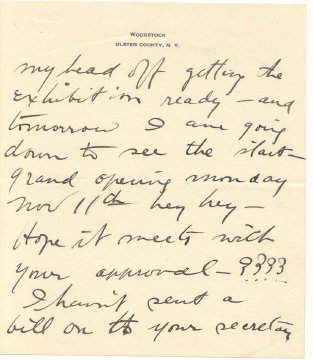 WOODSTOCK
ULSTER COUNTY, N. Y.
my head off getting the
exhibition ready – and
tomorrow I am going
down to see the start –
grand opening monday
Nov 11th hey hey –
Hope it meets with
your approval – ????
I havn't sent a
bill on to your secretary